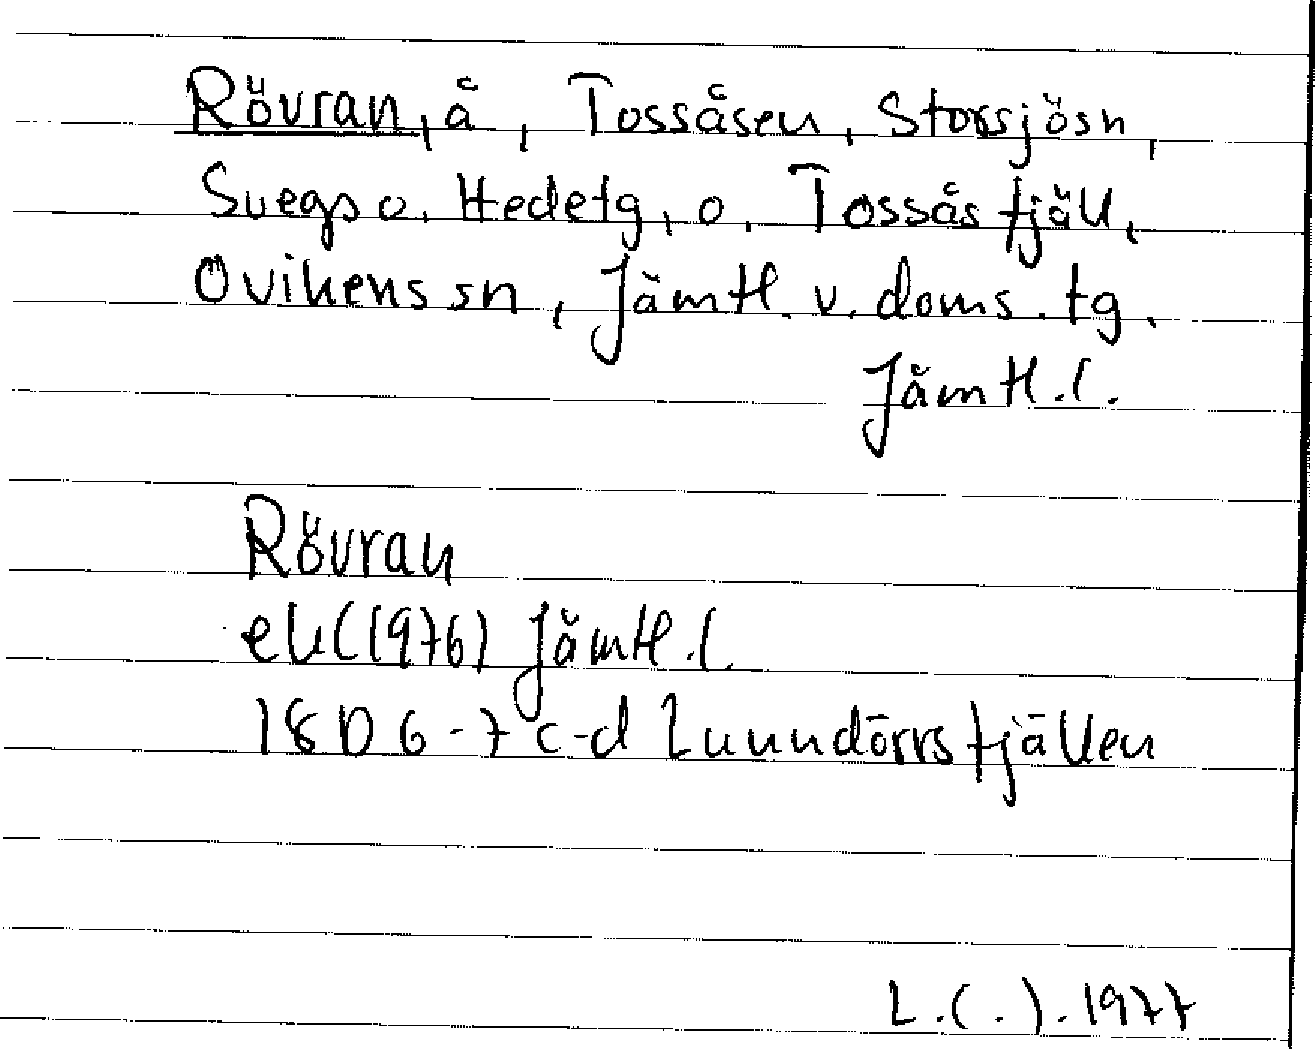 Rövran, å, Tossåsen, Storsjösn,
Svegs o. Hedetg, o. Tossåsfjäll,
Ovikens sn, Jämtl. v. doms. tg,
Jämtl. l.
Rövran
ek (1976) Jämtl. l.
18D 6-7 c-d Lunndörrsfjällen
L.(.). 1977